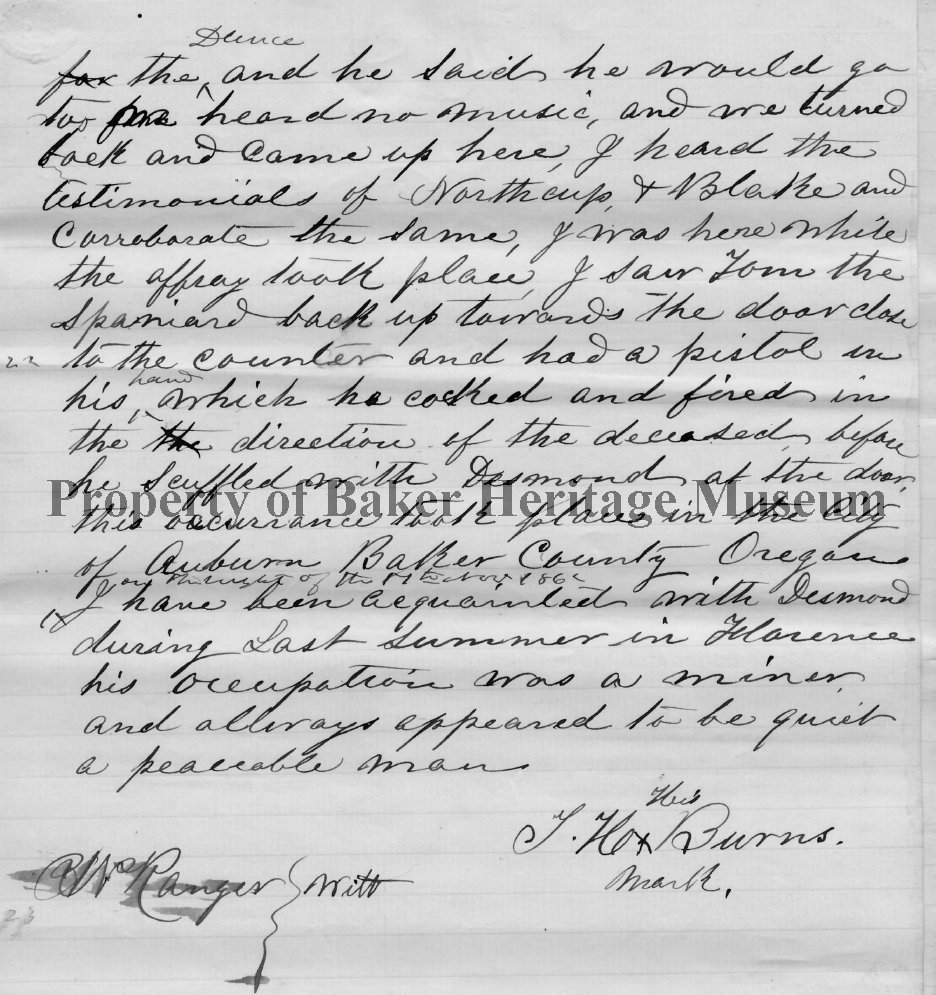 Dance
for the ^ and he said he would go
too heard no music, and we turned
back and came up here, I heard the
testimonials of Northcup, & Blake and
Corroborate the same, I was here while
the affray took place, I saw Tom the
Spaniard back up towards the door close
to the counter and had a pistol in
hand
his ^ which he cocked and fired in
the the direction of the deceased, before
he scuffled with Desmond at the door,
Property of Baker Heritage Museum
this occurrance took place in the City
of Auburn Baker County Oregon
on the night of the Nov 1862
I have been acquainted with Desmond
during Last summer in Florence
his occupation was a miner
and allways appeared to be quiet
a peaceable man
His
T. H x Burns.
Mark,
Ranger } Witt